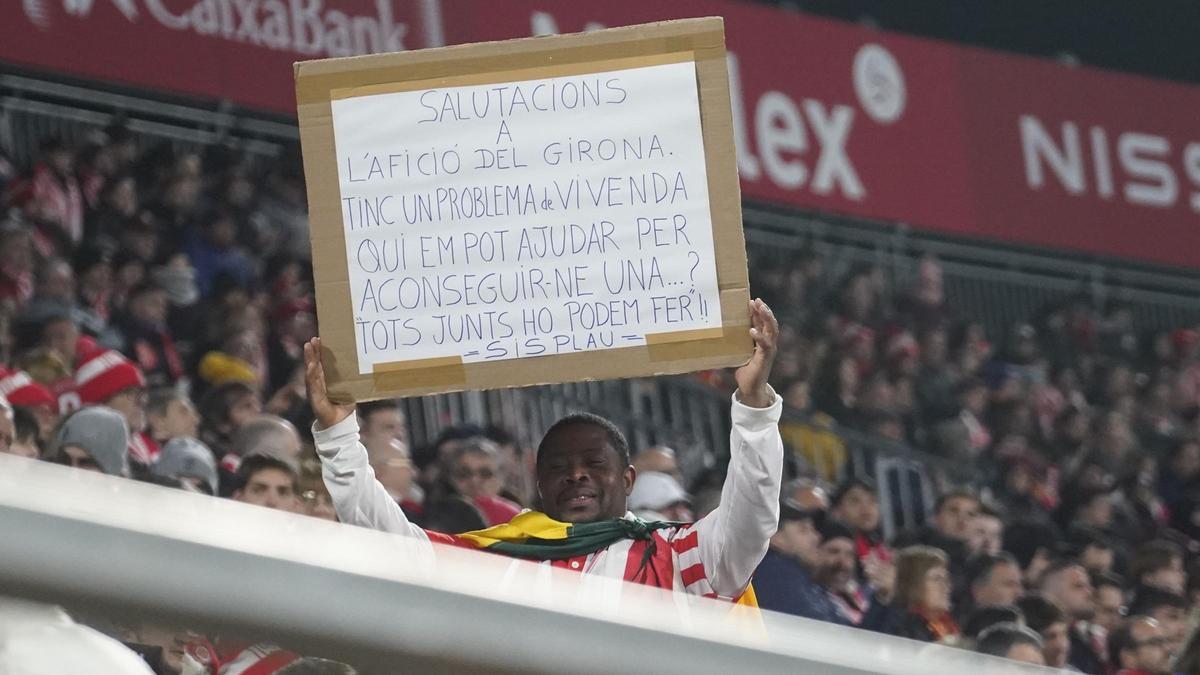 CaixaBank
NISS
lex
SALUTACIONS
A
L'AFICIÓ DEL GIRONA.
TINC UN PROBLEMA de VIVENDA
QUI EM POT AJUDAR PER
ACONSEGUIR-NE UNA...?
"TOTS JUNTS HO PODEM FER"!!
= SIS PLAU =